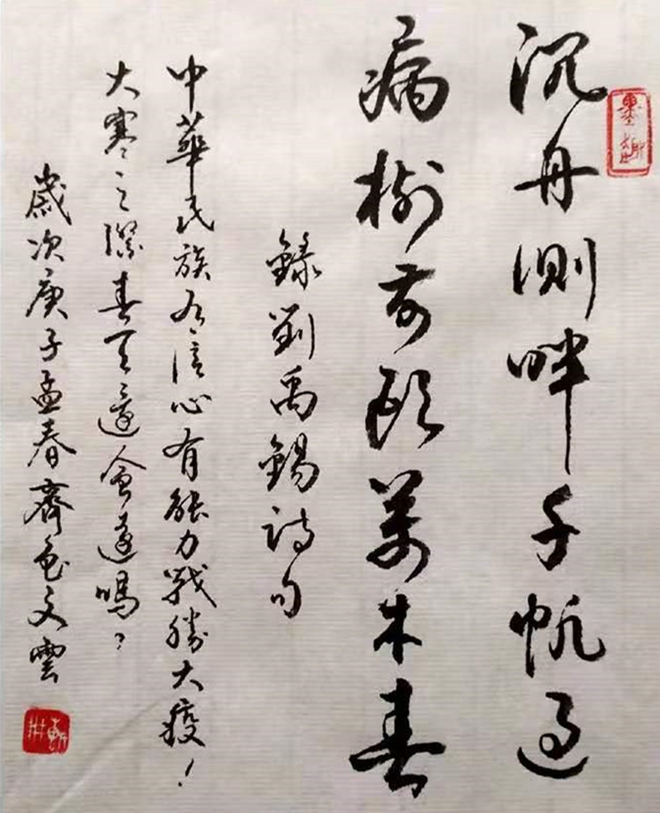 沉舟側畔千帆過
病樹前頭萬木春
錄劉禹錫詩句
中華民族有信心有能力戰勝大疫！
大寒之際春天還會遠嗎？
歲次庚子孟春齊文雲
墨趣